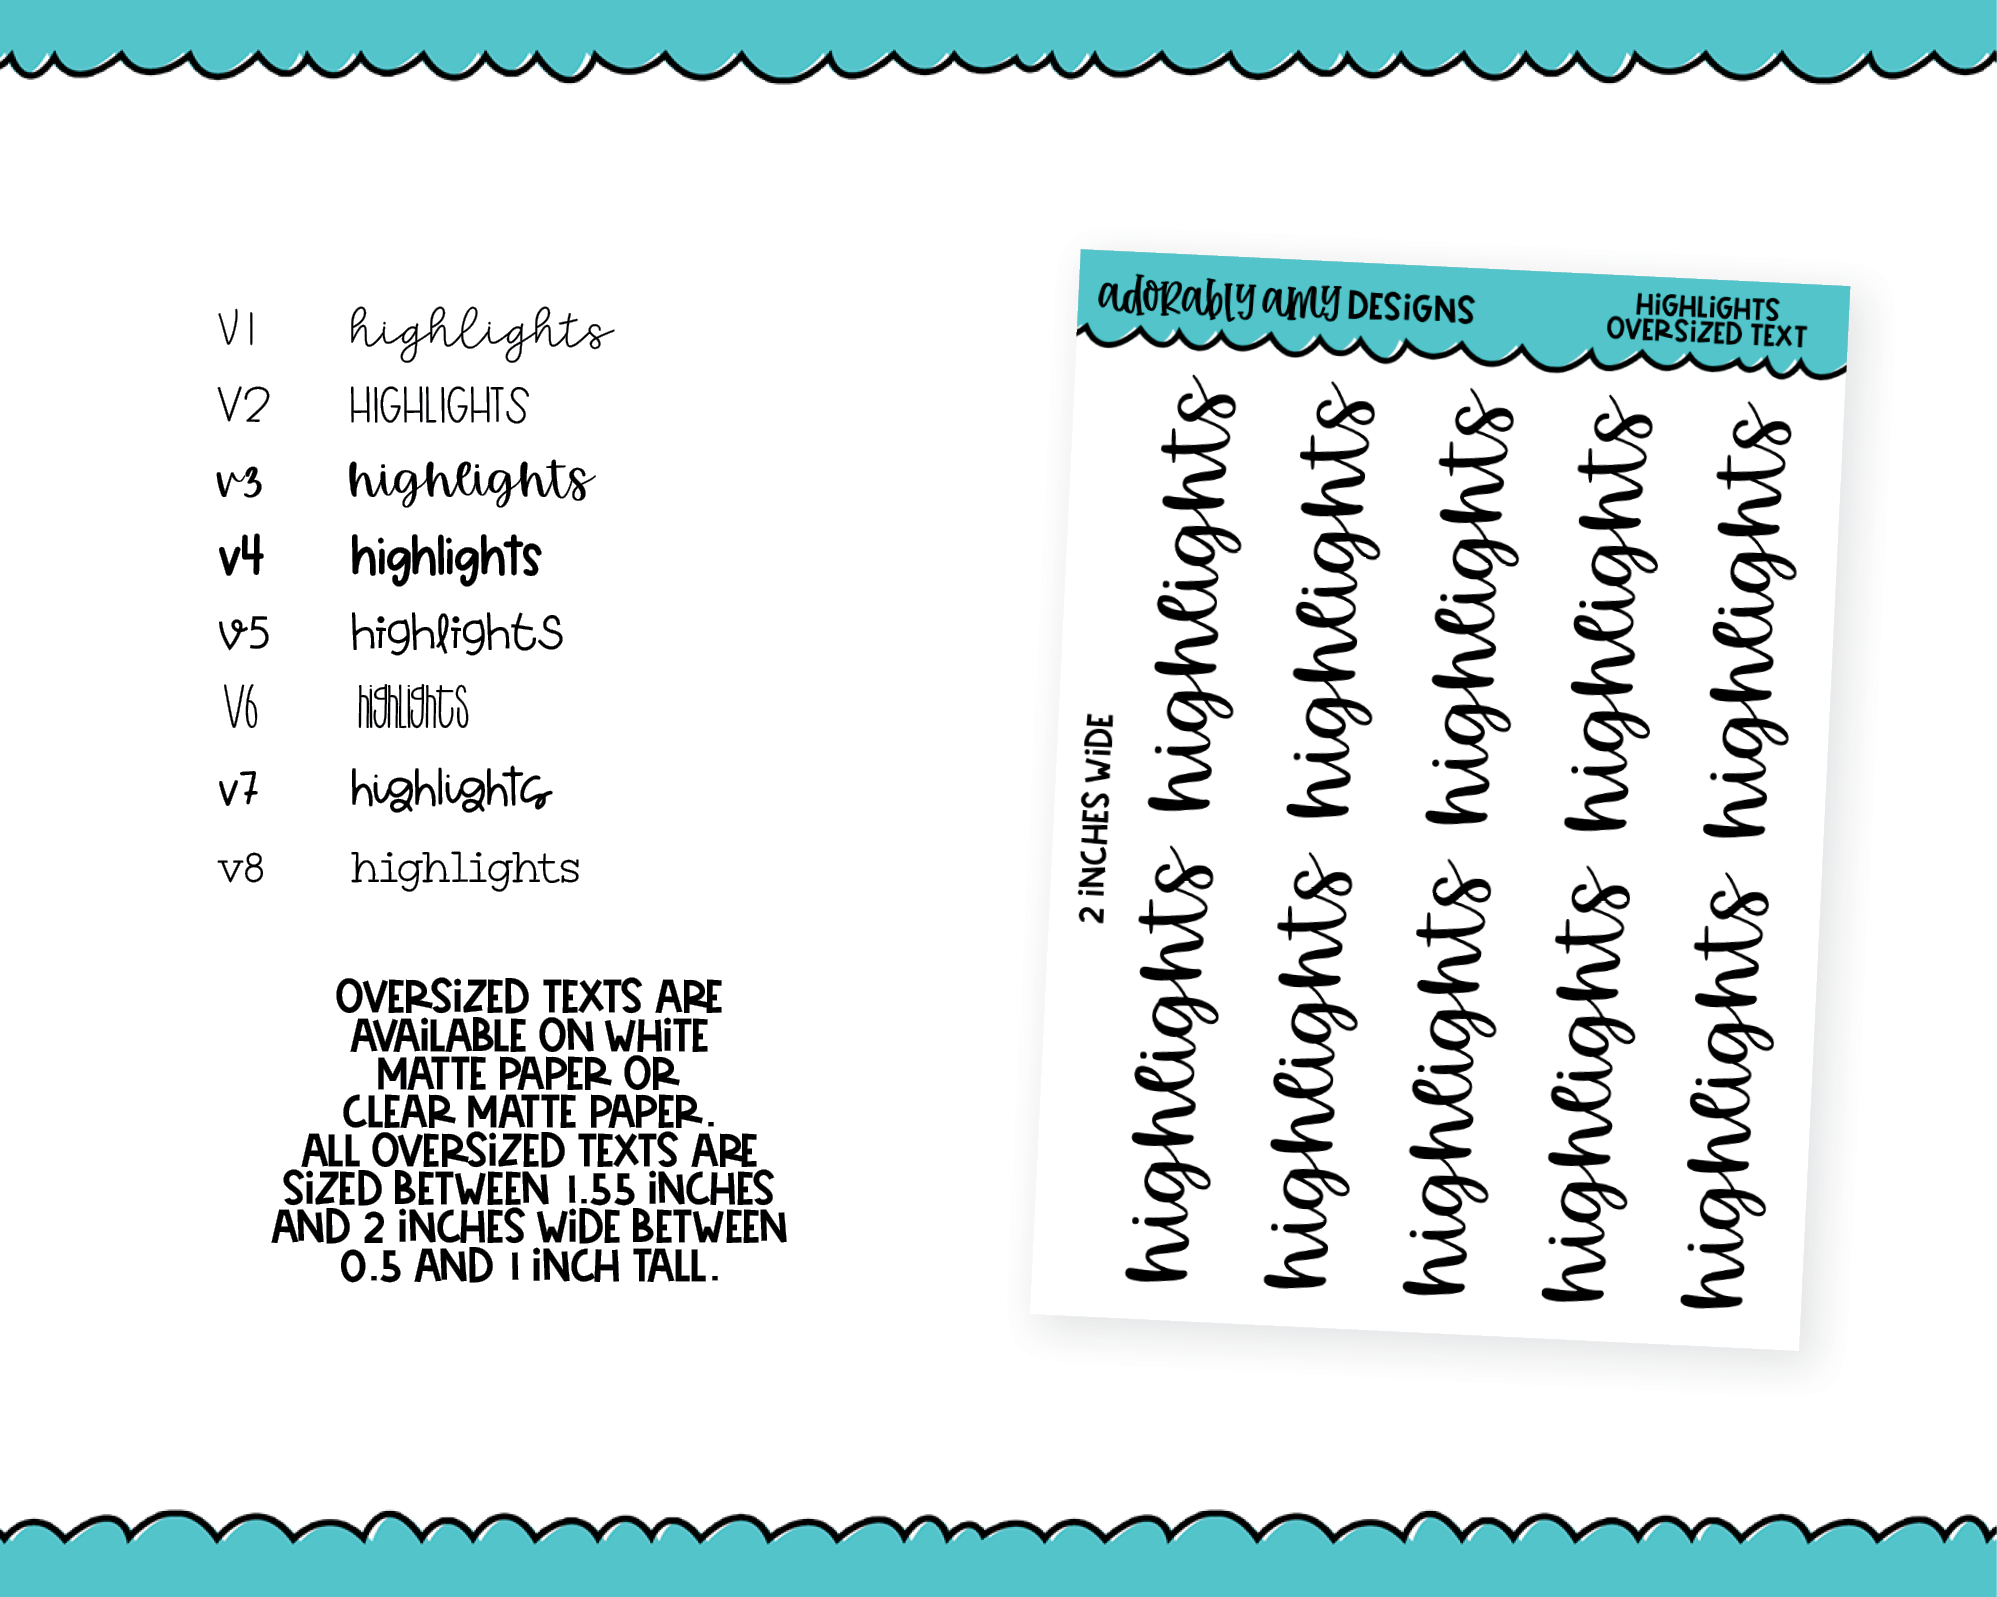 V1 highlights
V2 HIGHLIGHTS
v3 highlights
v4 highlights
v5 highlights
V6 highlights
v7 highlights
v8 highlights
OVERSiZED TEXTS ARE
AVAiLABLE ON WHiTE
MATTE PAPER OR
CLEAR MATTE PAPER.
ALL OVERSiZED TEXTS ARE
SiZED BETWEEN 1.55 iNCHES
AND 2 iNCHES WiDE BETWEEN
0.5 AND 1 iNCH TALL.
adORAbLY amY DESiGNS
HiGHLiGHTS
OVERSiZED TEXT
2 iNCHES WiDE
highlights
highlights
highlights
highlights
highlights
highlights
highlights
highlights
highlights
highlights